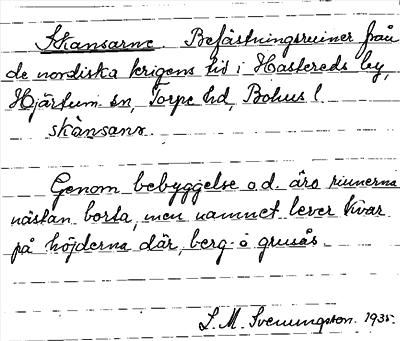 Skansarne Befästningsruiner från
de nordiska krigens tid i Hastereds by,
Hjärtum sn, Torpe hd, Bohus l.
skánsanr
Genom bebyggelse o.d. äro ruinerna
nästan borta, men namnet lever kvar
på höjderna där, berg o grusås.
L. M. Svenungsson. 1935.